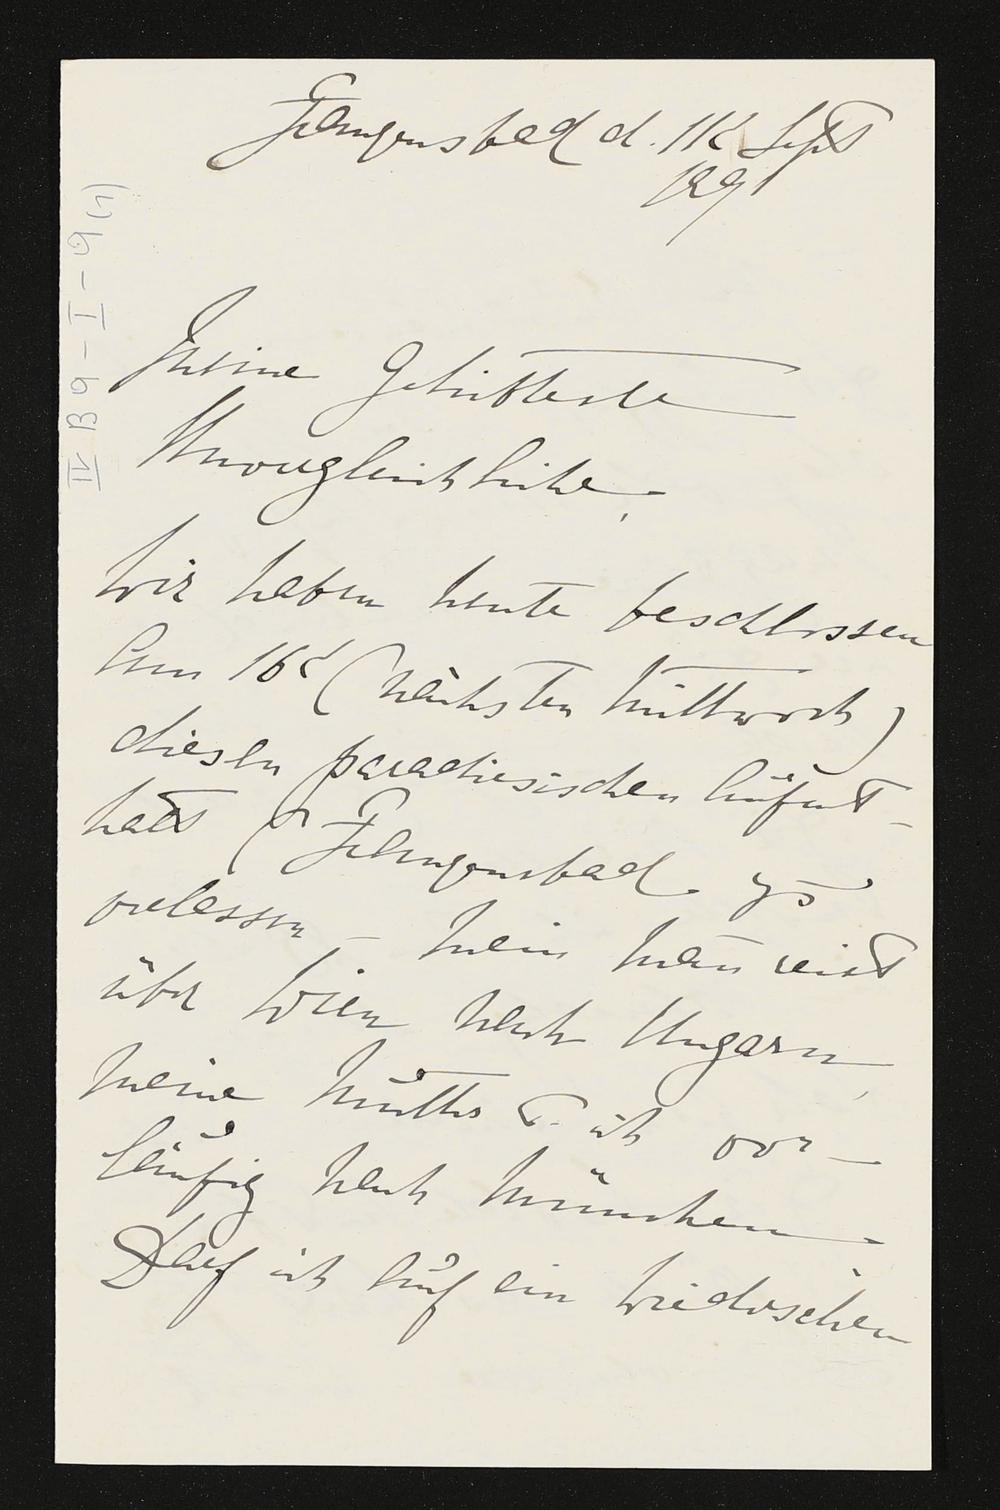 Franzensbad d. 11t Sept
1891
Meine Geliebteste
Unvergleichliche,
Wir haben heute beschlossen
am 16t (nächsten Mittwoch)
diesen paradiesischen Aufent-
halt Franzensbad zu
verlassen – Mein Mañ reist
über Wien nach Ungarn,
meine Mutter u. ich vor-
läufig nach München.
Darf ich auf ein Wiedersehen
IV B 9 – I – 9 (1)